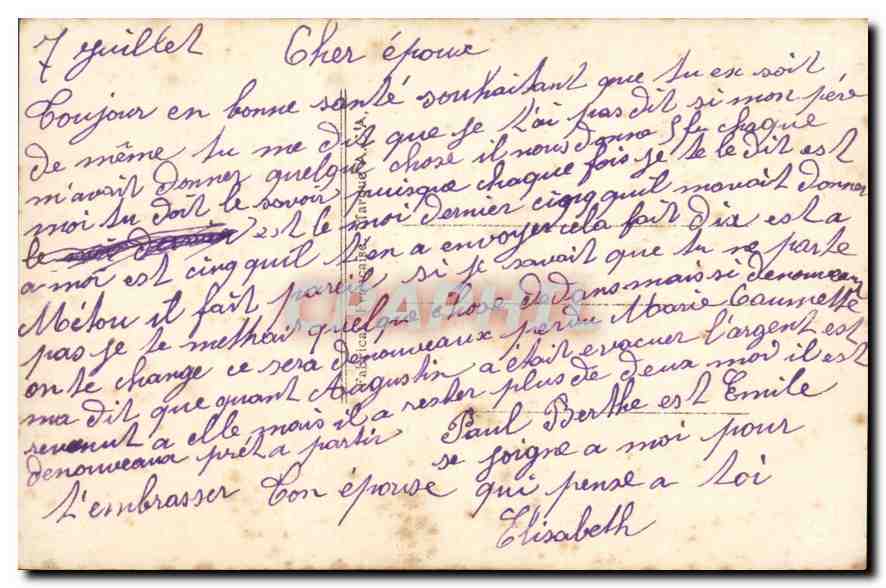 7 juillet Cher époux
Toujour en bonne santé souhaitant que tu ex soit
de même tu me dit que je t'ai pas dit si mon pére
m'avait donnez quelque chose il nous donne 5 fr chaque
moi tu doit le savoir puisque chaque fois je te le dit est
le est le moi dernier cinq quil mavait donner
a moi est cinq quil t'en a envoyer cela fait dix est a
Métou il fait pareil si je savait que tu ne parte
pas je te methrai quelque chose dedans mais si denouveau
on te change ce sera denouveaux perdu Marie Caumette
ma dit que quant Augustin a était evacuer l'argent est
revenut a elle mais il a rester plus de deux moi il est
denouveaux prét a partir Paul Berthe est Emile
se joigne a moi pour
t'embrasser Ton épouse qui pense a toi
Elisabeth
Fabrication Française Marque A.L'A.
CPAPHIL